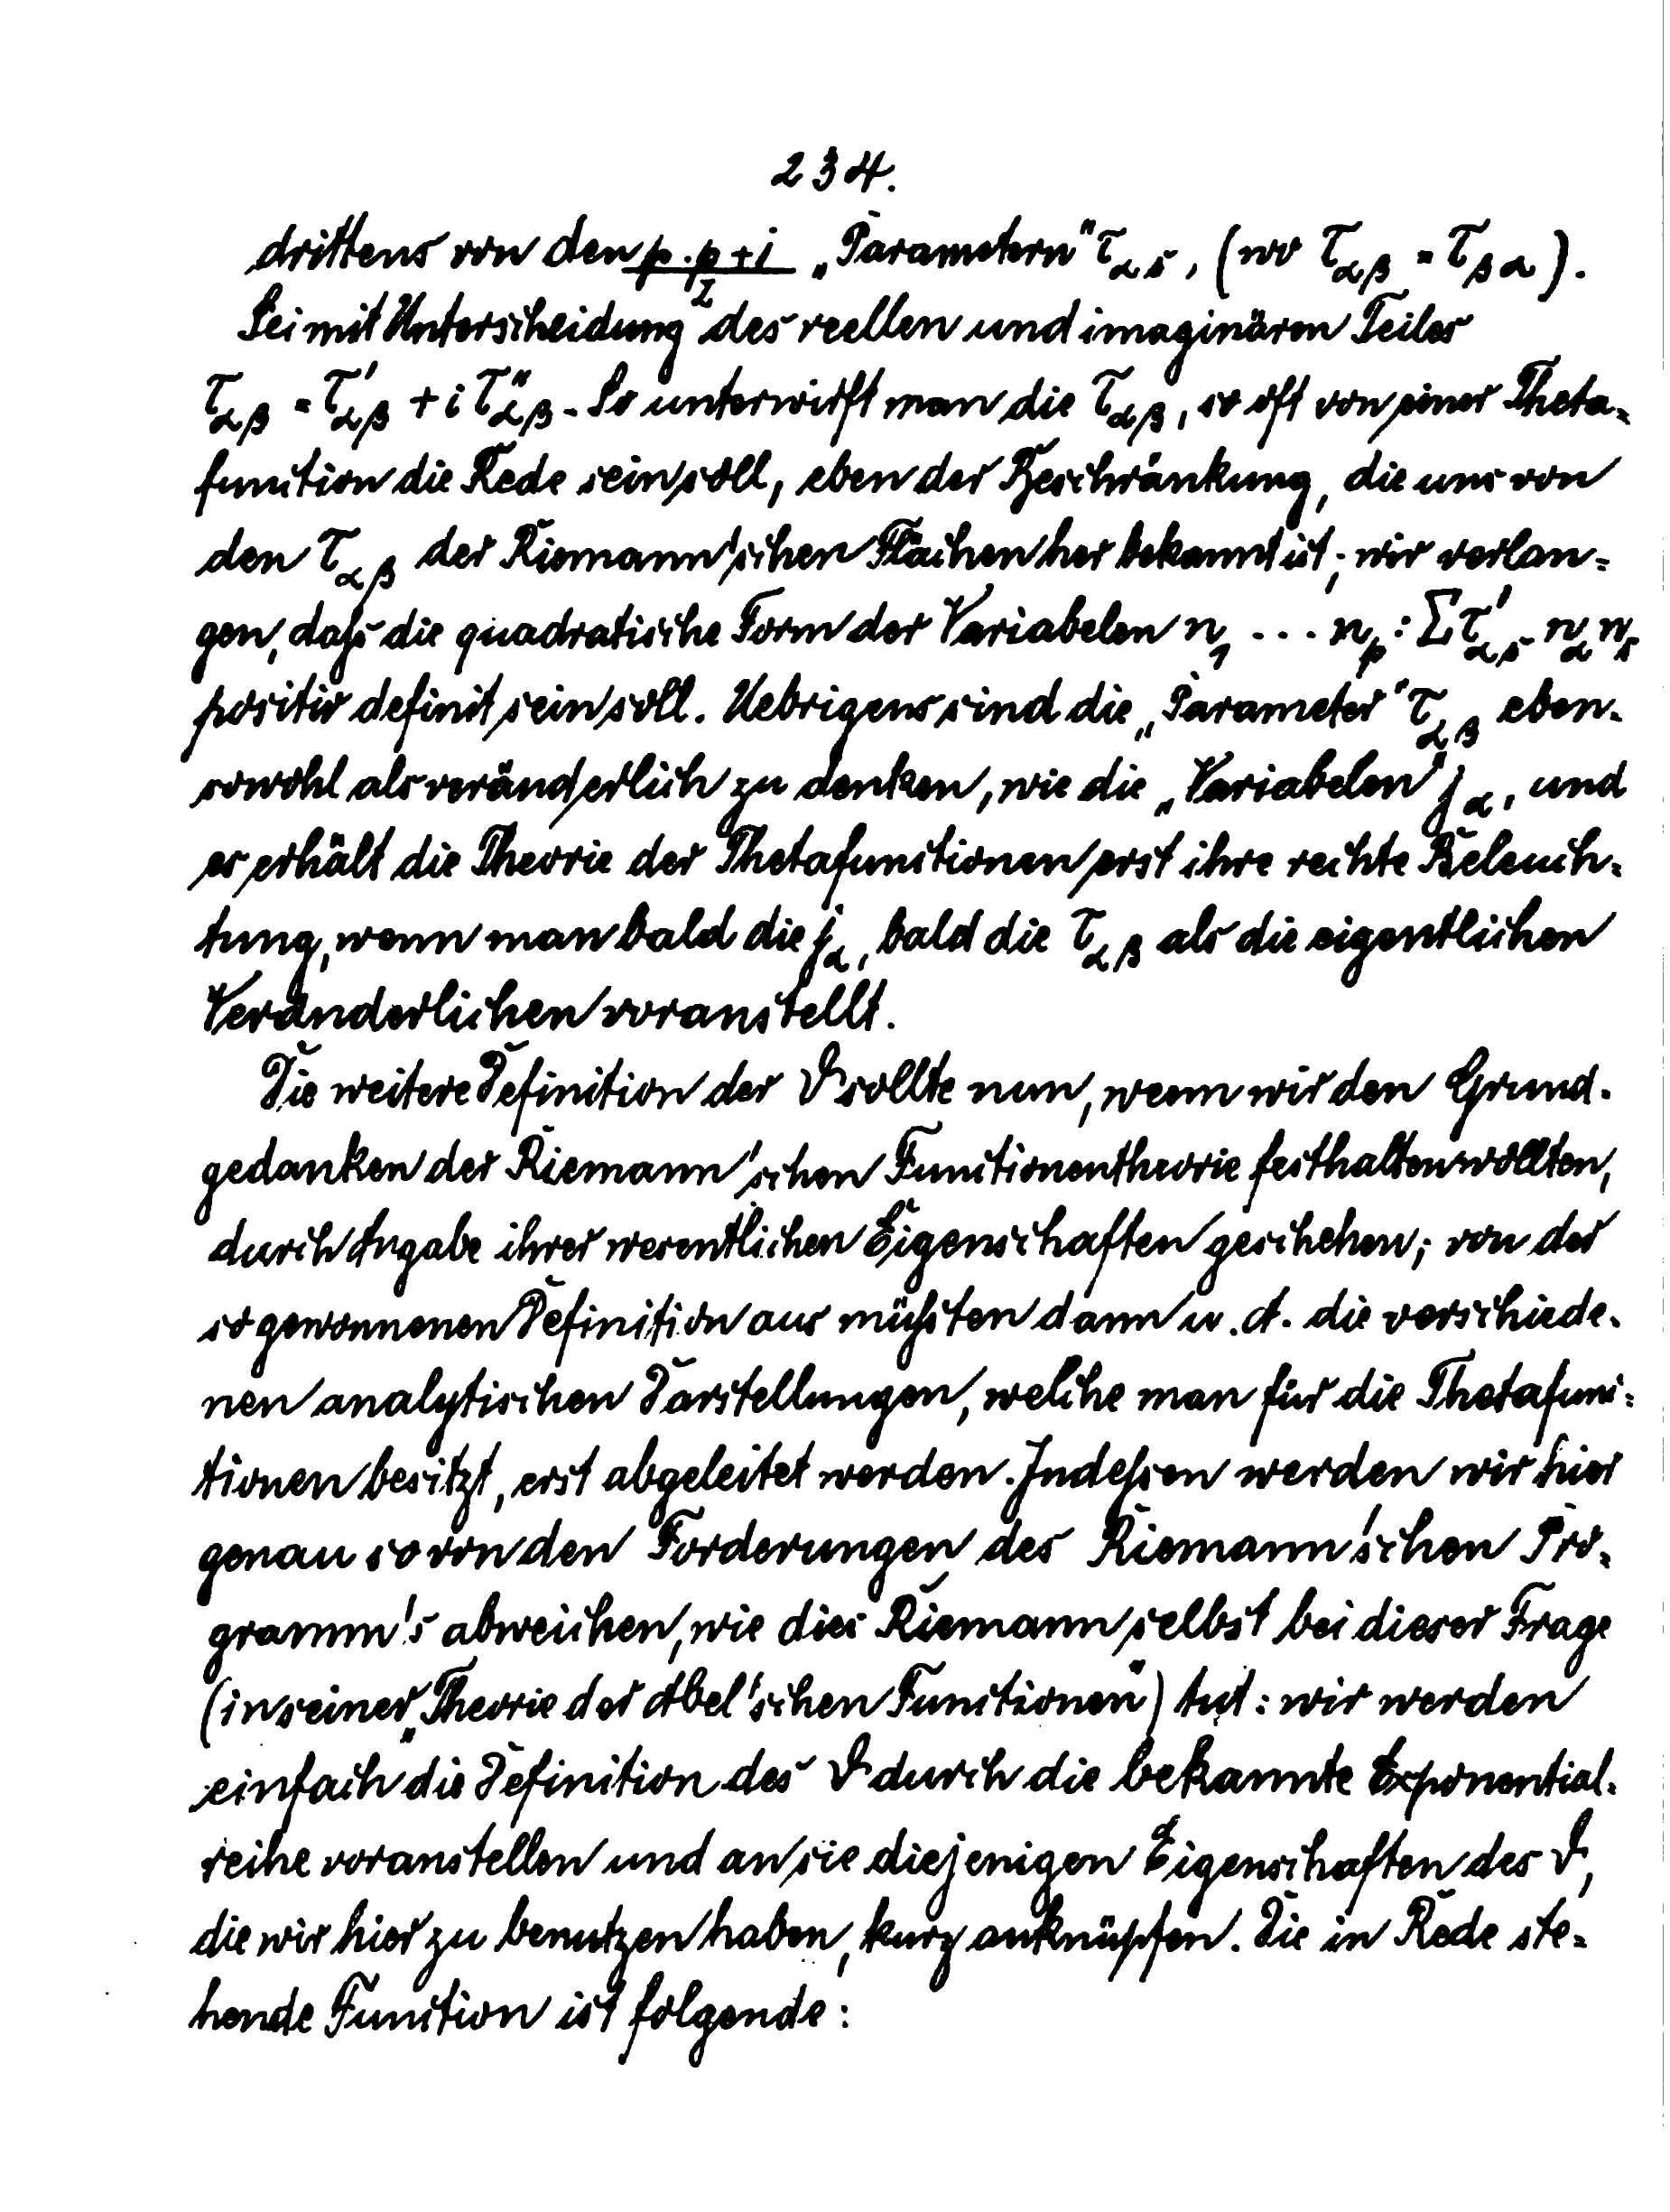 234.
drittens von den p·p+1/2 „Parametern" τ_αβ, (wo τ_αβ = τ_βα).
Sei mit Unterscheidung des reellen und imaginären Teiles
τ_αβ = τ'_αβ + i τ''_αβ. So unterwirft man die τ_αβ, so oft von einer Theta-
function die Rede sein soll, eben der Beschränkung, die uns von
den τ_αβ der Riemann'schen Flächen her bekannt ist; wir verlan-
gen, daß die quadratische Form der Variabelen n_1 ... n_p: Σ τ'_αβ n_α n_β
positiv definit sein soll. Uebrigens sind die „Parameter" τ_αβ eben-
sowohl als veränderlich zu denken, wie die „Variabelen" j_α, und
es erhält die Theorie der Thetafunctionen erst ihre rechte Beleuch-
tung, wenn man bald die j_α, bald die τ_αβ als die eigentlichen
Veränderlichen voranstellt.
Die weitere Definition der ϑ sollte nun, wenn wir den Grund-
gedanken der Riemann'schen Functionentheorie festhalten wollten,
durch Angabe ihrer wesentlichen Eigenschaften geschehen; von der
so gewonnenen Definition aus müßten dann u. A. die verschiede-
nen analytischen Darstellungen, welche man für die Thetafunc-
tionen besitzt, erst abgeleitet werden. Indeßen werden wir hier
genau so von den Forderungen des Riemann'schen Pro-
gramm's abweichen, wie dies Riemann selbst bei dieser Frage
(in seiner „Theorie der Abel'schen Functionen") tut: wir werden
einfach die Definition des ϑ durch die bekannte Exponential-
reihe voranstellen und an sie diejenigen Eigenschaften des ϑ,
die wir hier zu benutzen haben, kurz anknüpfen. Die in Rede ste-
hende Function ist folgende: